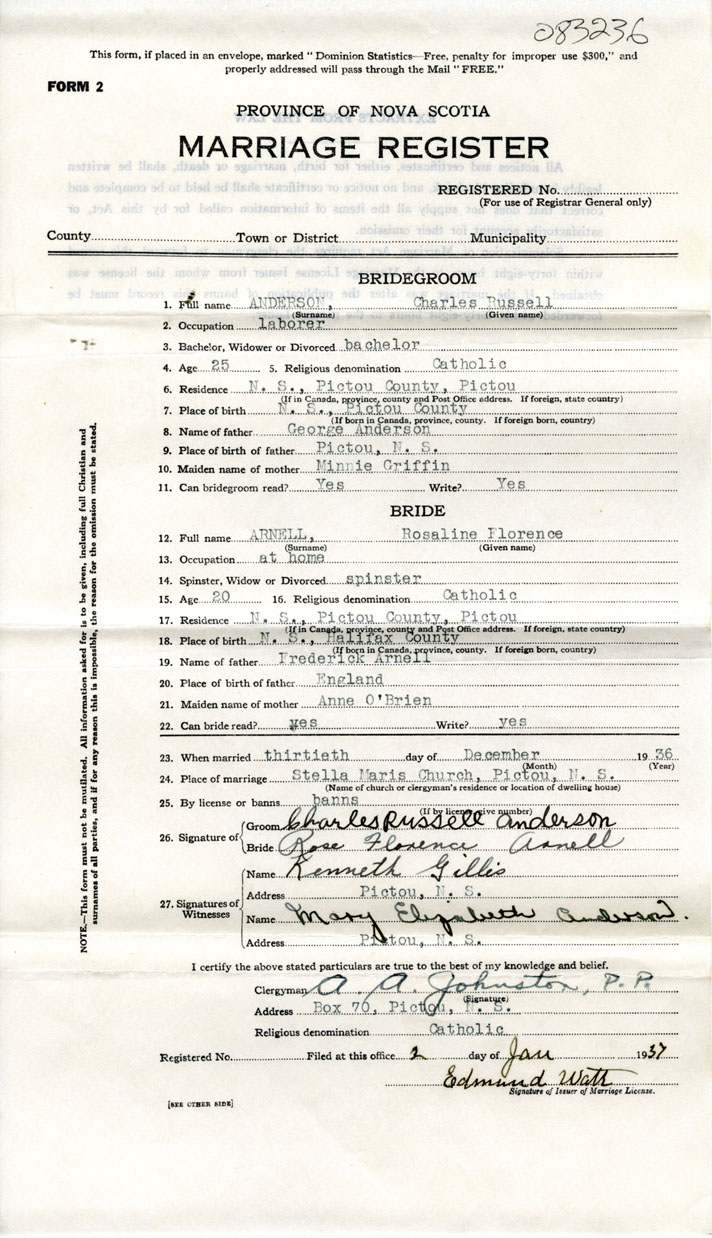 083236
This form, if placed in an envelope, marked "Dominion Statistics—Free, penalty for improper use $300," and
properly addressed will pass through the Mail "FREE."
FORM 2
PROVINCE OF NOVA SCOTIA
MARRIAGE REGISTER
REGISTERED No.
(For use of Registrar General only)
County Town or District Municipality
BRIDEGROOM
1. Full name ANDERSON, Charles Russell
(Surname) (Given name)
2. Occupation laborer
3. Bachelor, Widower or Divorced bachelor
4. Age 25 5. Religious denomination Catholic
6. Residence N. S., Pictou County, Pictou
(If in Canada, province, county and Post Office address. If foreign, state country)
7. Place of birth N. S., Pictou County
(If born in Canada, province, county. If foreign born, country)
8. Name of father George Anderson
9. Place of birth of father Pictou, N. S.
10. Maiden name of mother Minnie Griffin
11. Can bridegroom read? Yes Write? Yes
BRIDE
12. Full name ARNELL, Rosaline Florence
(Surname) (Given name)
13. Occupation at home
14. Spinster, Widow or Divorced spinster
15. Age 20 16. Religious denomination Catholic
17. Residence N. S., Pictou County, Pictou
(If in Canada, province, county and Post Office address. If foreign, state country)
18. Place of birth N. S., Halifax County
(If born in Canada, province, county. If foreign born, country)
19. Name of father Frederick Arnell
20. Place of birth of father England
21. Maiden name of mother Anne O'Brien
22. Can bride read? yes Write? yes
23. When married thirtieth day of December 1936
(Month) (Year)
24. Place of marriage Stella Maris Church, Pictou, N. S.
(Name of church or clergyman's residence or location of dwelling house)
25. By license or banns banns
(If by license give number)
26. Signature of Groom Charles Russell Anderson
Bride Rose Florence Arnell
27. Signatures of Witnesses
Name Kenneth Gillis
Address Pictou, N. S.
Name Mary Elizabeth Anderson.
Address Pictou, N. S.
I certify the above stated particulars are true to the best of my knowledge and belief.
Clergyman A. A. Johnston, P. P.
(Signature)
Address Box 70, Pictou, N. S.
Religious denomination Catholic
Registered No. Filed at this office 2 day of Jan 1937
Edmund Watt
Signature of Issuer of Marriage License.
[SEE OTHER SIDE]
NOTE.—This form must not be mutilated. All information asked for is to be given, including full Christian and
surnames of all parties, and if for any reason this is impossible, the reason for the omission must be stated.